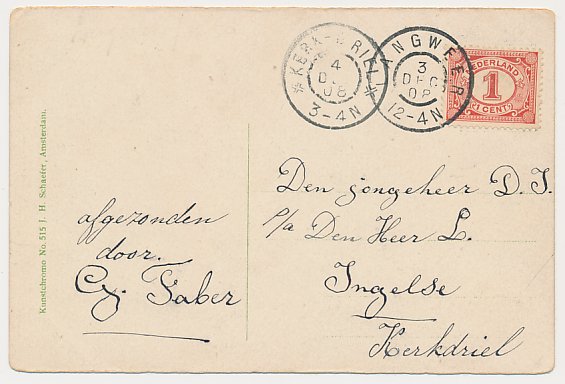 KERK-DRIEL
4
DEC
08
3-4N
LANGWEER
3
DEC
08
12-4N
NEDERLAND
1
(1 CENT)
Den jongeheer D. I.
p/a Den Heer L.
Ingelse
Kerkdriel
afgezonden
door.
Cg. Faber
Kunstchromo No. 515 J. H. Schaefer, Amsterdam.